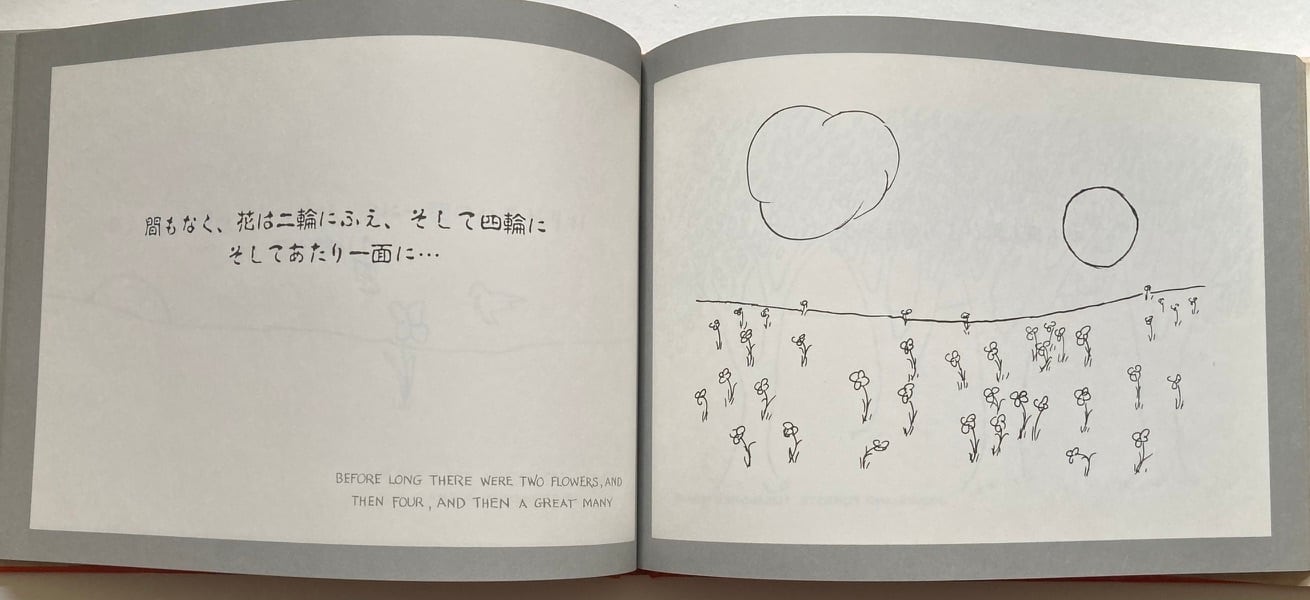 間もなく、花は二輪にふえ、そして四輪に
そしてあたり一面に…
BEFORE LONG THERE WERE TWO FLOWERS, AND
THEN FOUR, AND THEN A GREAT MANY